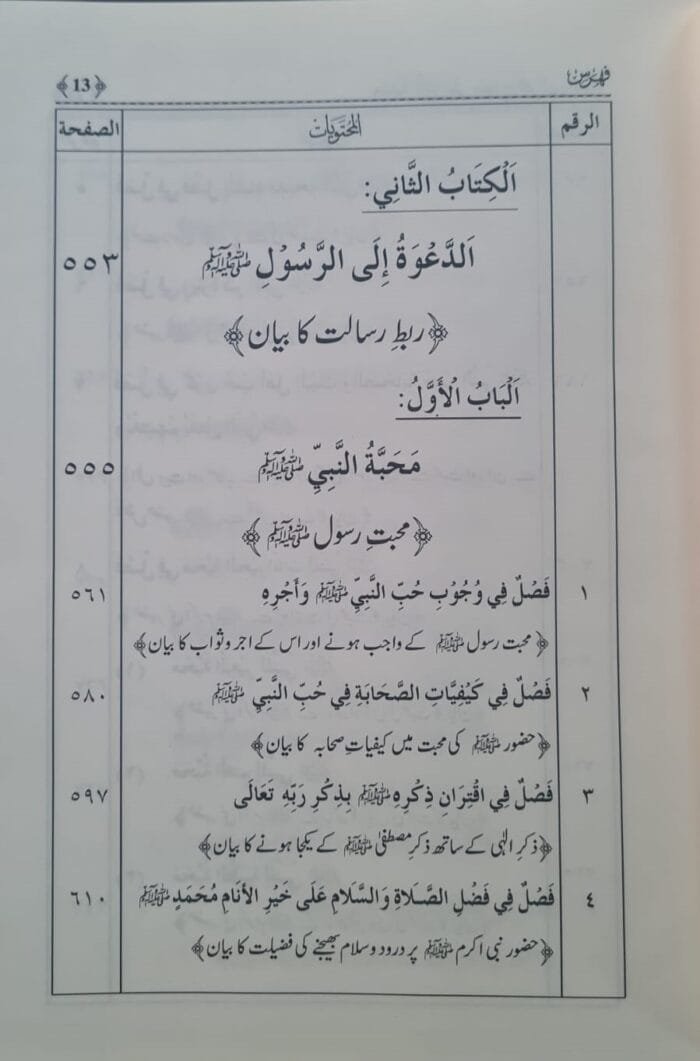 فہرس ﴿13﴾
الرقم المحتويات الصفحة
اَلْكِتَابُ الثَّانِي:
اَلدَّعْوَةُ إِلَى الرَّسُوْلِ ﷺ ٥٥٣
﴿ربطِ رسالت کا بیان﴾
اَلْبَابُ الْأَوَّلُ:
مَحَبَّةُ النَّبِيِّ ﷺ ٥٥٥
﴿محبتِ رسول ﷺ﴾
١ فَصْلٌ فِي وُجُوْبِ حُبِّ النَّبِيِّ ﷺ وَأَجْرِهِ ٥٦١
﴿محبت رسول ﷺ کے واجب ہونے اور اس کے اجر و ثواب کا بیان﴾
٢ فَصْلٌ فِي كَيْفِيَّاتِ الصَّحَابَةِ فِي حُبِّ النَّبِيِّ ﷺ ٥٨٠
﴿حضور ﷺ کی محبت میں کیفیاتِ صحابہ کا بیان﴾
٣ فَصْلٌ فِي اقْتِرَانِ ذِكْرِهِ ﷺ بِذِكْرِ رَبِّهِ تَعَالَى ٥٩٧
﴿ذکرِ الٰہی کے ساتھ ذکرِ مصطفیٰ ﷺ کے یکجا ہونے کا بیان﴾
٤ فَصْلٌ فِي فَضْلِ الصَّلَاةِ وَالسَّلَامِ عَلَى خَيْرِ الأَنَامِ مُحَمَّدٍ ﷺ ٦١٠
﴿حضور نبی اکرم ﷺ پر درود و سلام بھیجنے کی فضیلت کا بیان﴾